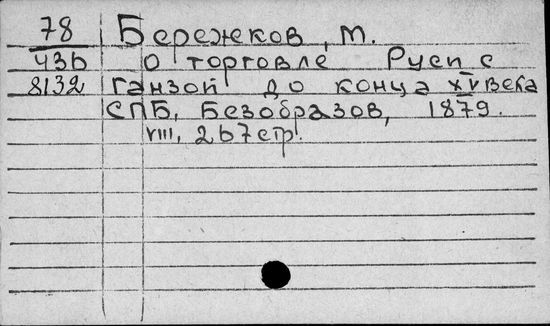 78 Бережков, М.
436 О торговле Руси с
8132 Ганзой до конца XV века
СПБ, Безобразов, 1879.
VIII, 267 стр.